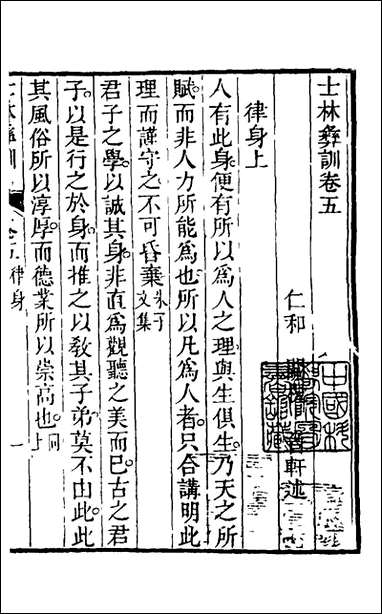 士林彝訓卷五
仁和 軒述
律身上
人有此身便有所以爲人之理與生俱生乃天之所
賦而非人力所能爲也所以凡爲人者只合講明此
理而謹守之不可昏棄朱子文集
君子之學以誠其身非直爲觀聽之美而已古之君
子以是行之於身而推之以敎其子弟莫不由此此
其風俗所以淳厚而德業所以崇高也同上
士林彝訓 卷五律身 一